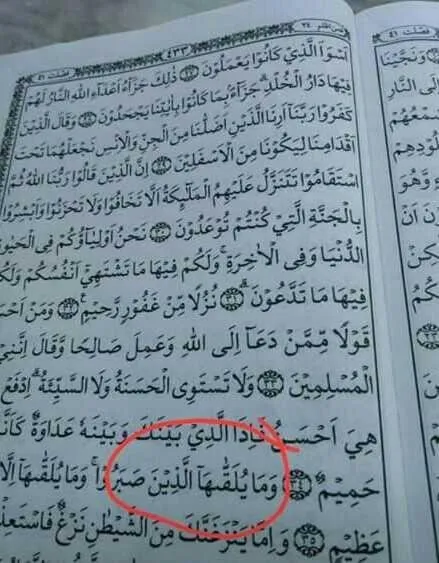 فمن اظلم ٢٤ ٤٣٣ فصلت ٤١
اَسْوَاَ الَّذِيْ كَانُوْا يَعْمَلُوْنَ ٢٧ ذٰلِكَ جَزَآءُ اَعْدَآءِ اللّٰهِ النَّارُ لَهُمْ
فِيْهَا دَارُ الْخُلْدِ جَزَآءً بِمَا كَانُوْا بِاٰيٰتِنَا يَجْحَدُوْنَ ٢٨ وَقَالَ الَّذِيْنَ
كَفَرُوْا رَبَّنَآ اَرِنَا الَّذَيْنِ اَضَلّٰنَا مِنَ الْجِنِّ وَالْاِنْسِ نَجْعَلْهُمَا تَحْتَ
اَقْدَامِنَا لِيَكُوْنَا مِنَ الْاَسْفَلِيْنَ ٢٩ اِنَّ الَّذِيْنَ قَالُوْا رَبُّنَا اللّٰهُ ثُمَّ
اسْتَقَامُوْا تَتَنَزَّلُ عَلَيْهِمُ الْمَلٰٓئِكَةُ اَلَّا تَخَافُوْا وَلَا تَحْزَنُوْا وَاَبْشِرُوْا
بِالْجَنَّةِ الَّتِيْ كُنْتُمْ تُوْعَدُوْنَ ٣٠ نَحْنُ اَوْلِيَآؤُكُمْ فِى الْحَيٰوةِ
الدُّنْيَا وَفِى الْاٰخِرَةِ وَلَكُمْ فِيْهَا مَا تَشْتَهِيْٓ اَنْفُسُكُمْ وَلَكُمْ
فِيْهَا مَا تَدَّعُوْنَ ٣١ نُزُلًا مِّنْ غَفُوْرٍ رَّحِيْمٍ ٣٢ وَمَنْ اَحْسَ
قَوْلًا مِّمَّنْ دَعَآ اِلَى اللّٰهِ وَعَمِلَ صَالِحًا وَّقَالَ اِنَّنِيْ
الْمُسْلِمِيْنَ ٣٣ وَلَا تَسْتَوِى الْحَسَنَةُ وَلَا السَّيِّئَةُ اِدْفَعْ
هِيَ اَحْسَنُ فَاِذَا الَّذِيْ بَيْنَكَ وَبَيْنَهٗ عَدَاوَةٌ كَاَنَّ
حَمِيْمٌ ٣٤ وَمَا يُلَقّٰىهَآ الَّذِيْنَ صَبَرُوْا وَمَا يُلَقّٰىهَآ اِلَّا
عَظِيْمٍ ٣٥ وَاِمَّا يَنْزَغَنَّكَ مِنَ الشَّيْطٰنِ نَزْغٌ فَاسْتَعِذْ
فصلت ٤١
وَنَجَّيْنَا
اِلَى النَّارِ
سَمْعُهُمْ
لُوْدِهِمْ
وَّهُوَ
وْنَ اَنْ
كِنْ
كُمُ